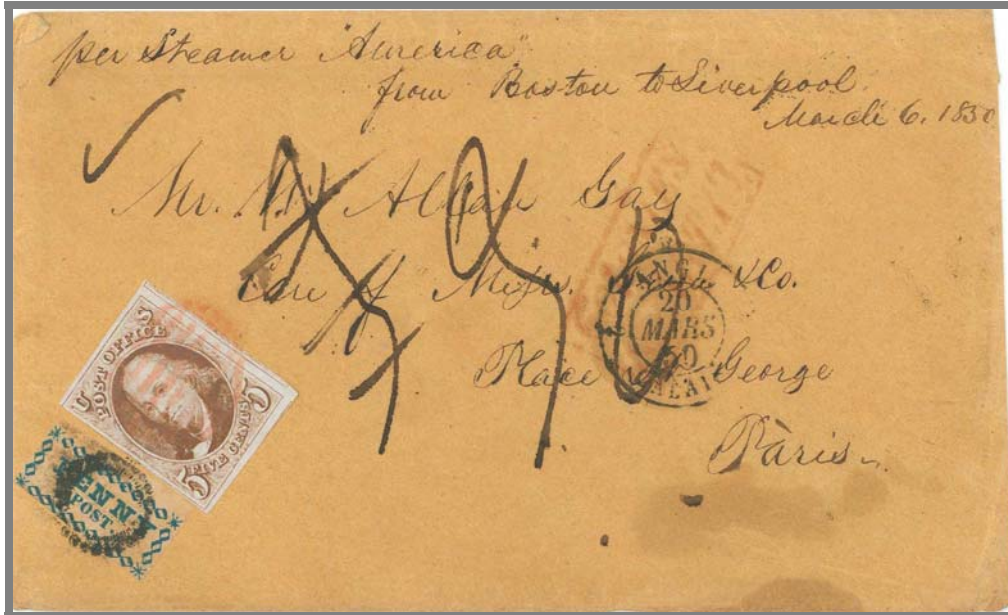 per Steamer "America"
from Boston to Liverpool
March 6. 1850
Mr. W. Allan Gay
Care of Messrs. &Co.
Place St. George
Paris
ANGL.
20
MARS
50
CALAIS
POST OFFICE
5 5
FIVE CENTS
PENNY
POST.